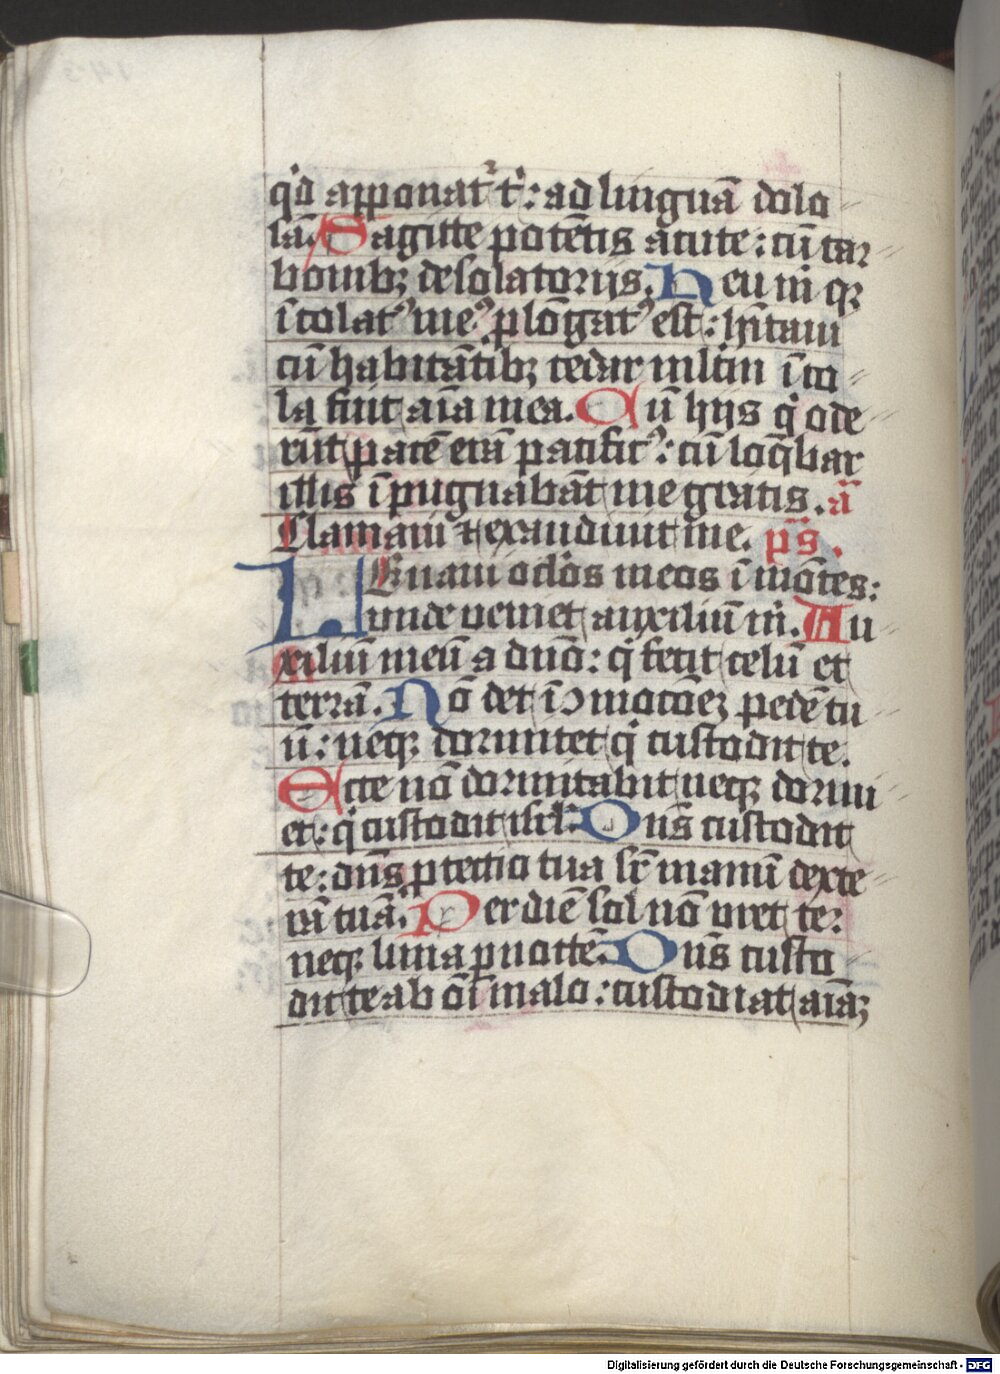 qͥd apponatᷣ tͥ: ad linguā dolo
sā. Sagitte potētis acute: cū car
bonibꝫ desolatoriis. Heu m̄ qꝫ
īcolatꝰ meꝰ plōgatꝰ est: hītaui
cū habitātibꝫ cedar mltm īco
la fuit aīa mea. Cū hijs qͥ ode
rūt pacē erā pacificꝰ: cū loq̄bar
illis īpugnabāt me gratis. ā
Clamaui ⁊ exaudiuit me. p̄s.
LEuaui oclōs meos ī mōtes:
unde veniet auxiliū m̄. Au
xiliū meū a dnō: qͥ fecit celū et
terrā. Nō det ī ↄmotōeꝫ pedē tu
ū: neqꝫ dormitet qͥ custodit te.
Ecce nō dormitabit neqꝫ dormi
et: qͥ custodit isrl̄. Dn̄s custodit
te: dn̄s ꝓtectio tua sr̄ manū dexte
rā tuā. Per diē sol nō vret te:
neqꝫ luna ꝑ noctē. Dn̄s custo
dit te ab oī malo: custodiat aīaꝫ
Digitalisierung gefördert durch die Deutsche Forschungsgemeinschaft - DFG